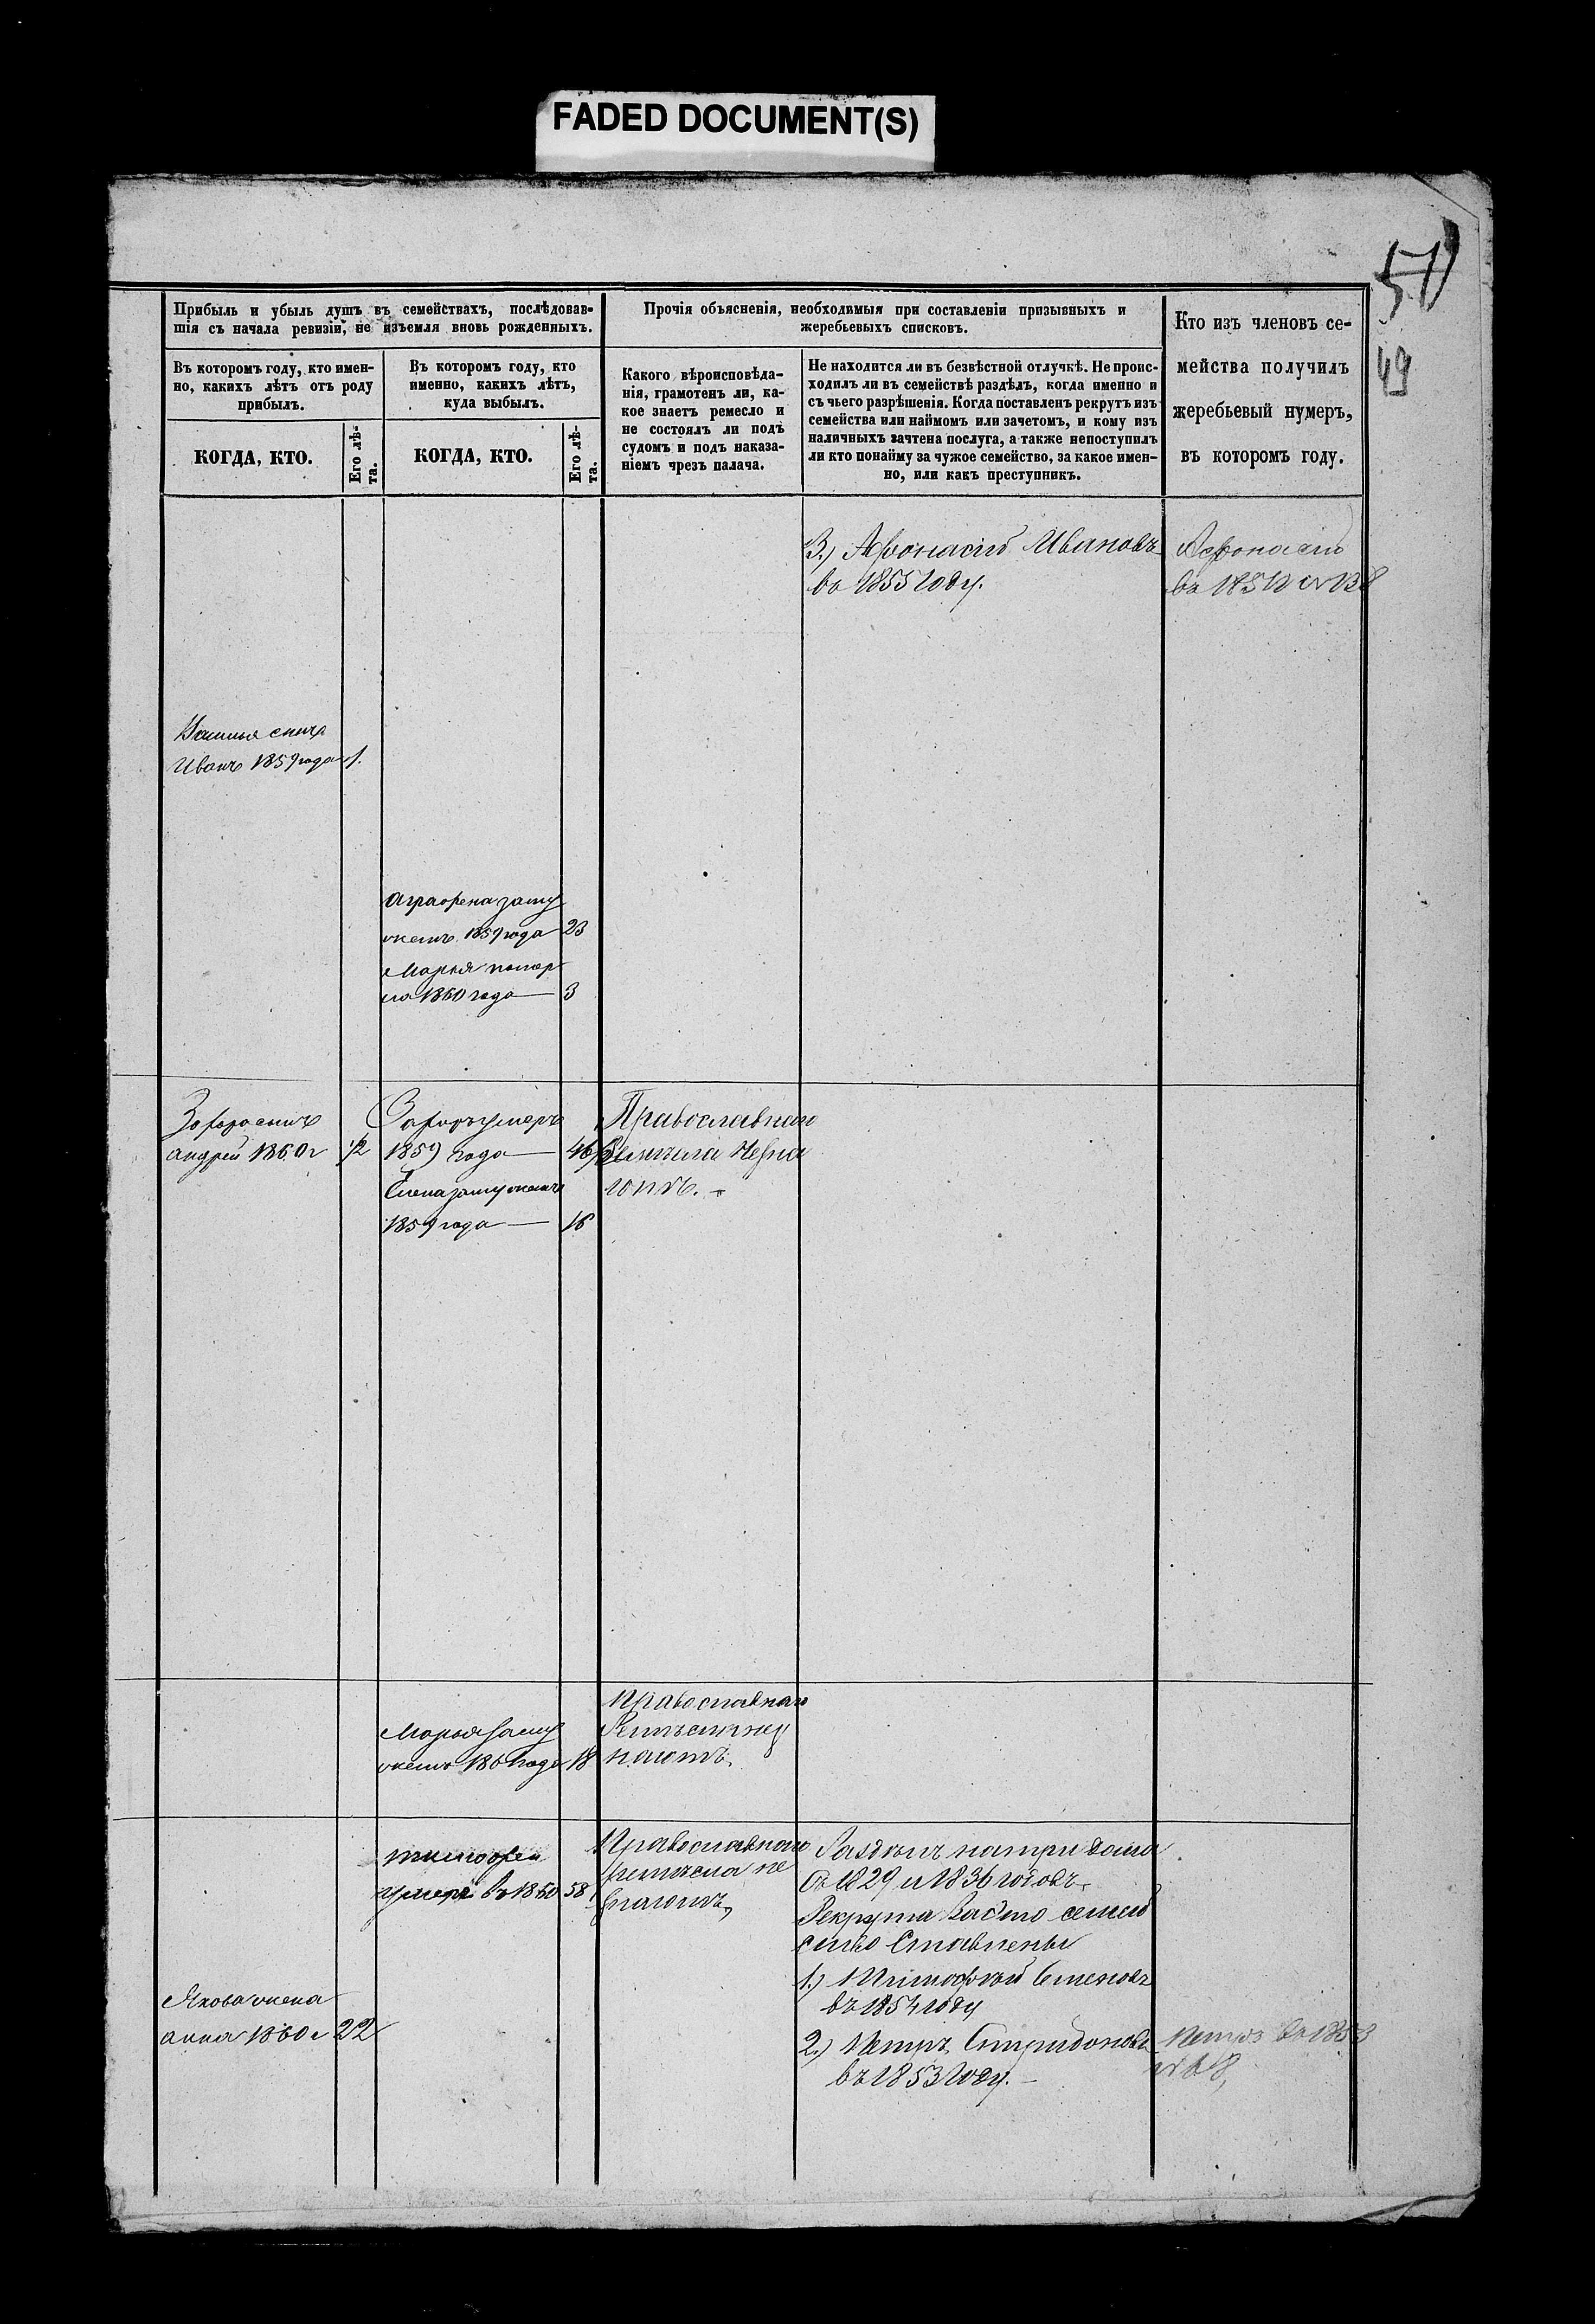 FADED DOCUMENT(S)
49
Прибыль и убыль душъ въ семействахъ, послѣдовав-
шія съ начала ревизіи, не изъемля вновь рожденныхъ.
Прочія объясненія, необходимыя при составленіи призывныхъ и
жеребьевыхъ списковъ.
Кто изъ членовъ се-
мейства получилъ
жеребьевый нумеръ,
въ которомъ году.
Въ которомъ году, кто имен-
но, какихъ лѣтъ отъ роду
прибылъ.
Въ которомъ году, кто
именно, какихъ лѣтъ,
куда выбылъ.
Какого вѣроисповѣда-
нія, грамотенъ ли, ка-
кое знаетъ ремесло и
не состоялъ ли подъ
судомъ и подъ наказа-
ніемъ чрезъ палача.
Не находится ли въ безвѣстной отлучкѣ. Не проис-
ходилъ ли въ семействѣ раздѣлъ, когда именно и
съ чьего разрѣшенія. Когда поставленъ рекрутъ изъ
семейства или наймомъ или зачетомъ, и кому изъ
наличныхъ зачтена послуга, а также непоступилъ
ли кто понайму за чужое семейство, за какое имен-
но, или какъ преступникъ.
КОГДА, КТО.
Его лѣ-
та.
КОГДА, КТО.
Его лѣ-
та.
3.) Афонасій Ивановъ
въ 1855 году.
Афонасій
въ
сынъ
Иванъ 1859 года 1.
Аграфена заму
жемъ 1859 года 23
Марья помер
ла 1860 года — 3
сынъ
андрей 1860 г 1/2
умеръ
1859 года — 46
Елена замужемъ
1859 года — 16
Православнаго
Марья заму
жемъ года 18
Православнаго
тимофей
умеръ въ 1860 58
Православнаго
ремесла не
знаютъ,
Раздѣлъ на три дома
съ 1829 и 1836 годовъ.
Рекрута семей
ство Ставлены
1.) Тимофѣй Семеновъ
въ 1854 году
2.) Петръ Спиридоновъ
въ 1853 году. —
Петръ въ 1853
Якова жена
анна 1860 г 22